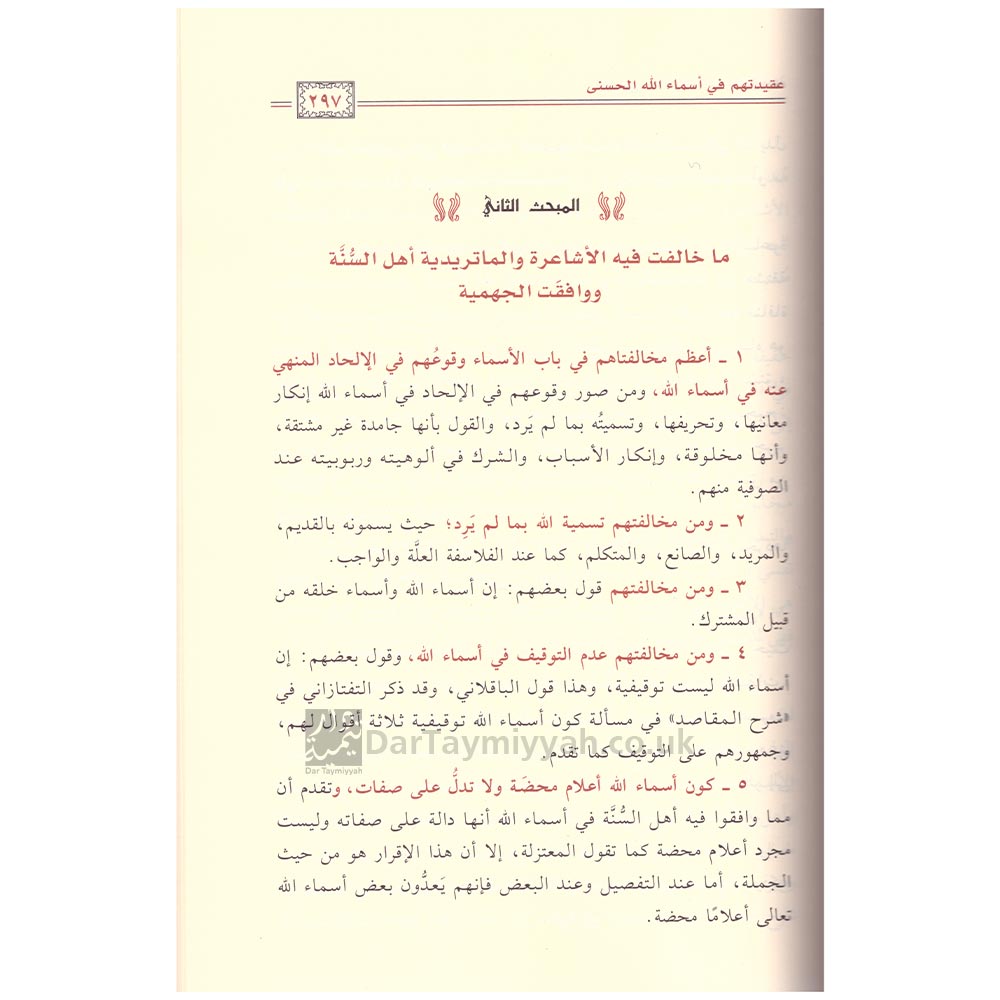 عقيدتهم في أسماء الله الحسنى
٢٩٧
المبحث الثاني
ما خالفت فيه الأشاعرة والماتريدية أهل السُّنَّة
ووافقَت الجهمية
١ ـ أعظم مخالفتاهم في باب الأسماء وقوعُهم في الإلحاد المنهي
عنه في أسماء الله، ومن صور وقوعهم في الإلحاد في أسماء الله إنكار
معانيها، وتحريفها، وتسميتُه بما لم يَرد، والقول بأنها جامدة غير مشتقة،
وأنها مخلوقة، وإنكار الأسباب، والشرك في ألوهيته وربوبيته عند
الصوفية منهم.
٢ ـ ومن مخالفتهم تسمية الله بما لم يَرِد؛ حيث يسمونه بالقديم،
والمريد، والصانع، والمتكلم، كما عند الفلاسفة العلَّة والواجب.
٣ ـ ومن مخالفتهم قول بعضهم: إن أسماء الله وأسماء خلقه من
قبيل المشترك.
٤ ـ ومن مخالفتهم عدم التوقيف في أسماء الله، وقول بعضهم: إن
أسماء الله ليست توقيفية، وهذا قول الباقلاني، وقد ذكر التفتازاني في
«شرح المقاصد» في مسألة كون أسماء الله توقيفية ثلاثة أقوال لهم،
وجمهورهم على التوقيف كما تقدم.
DarTaymiyyah.co.uk
Dar Taymiyyah
٥ ـ كون أسماء الله أعلام محضَة ولا تدلُّ على صفات، وتقدم أن
مما وافقوا فيه أهل السُّنَّة في أسماء الله أنها دالة على صفاته وليست
مجرد أعلام محضة كما تقول المعتزلة، إلا أن هذا الإقرار هو من حيث
الجملة، أما عند التفصيل وعند البعض فإنهم يَعدُّون بعض أسماء الله
تعالى أعلامًا محضة.